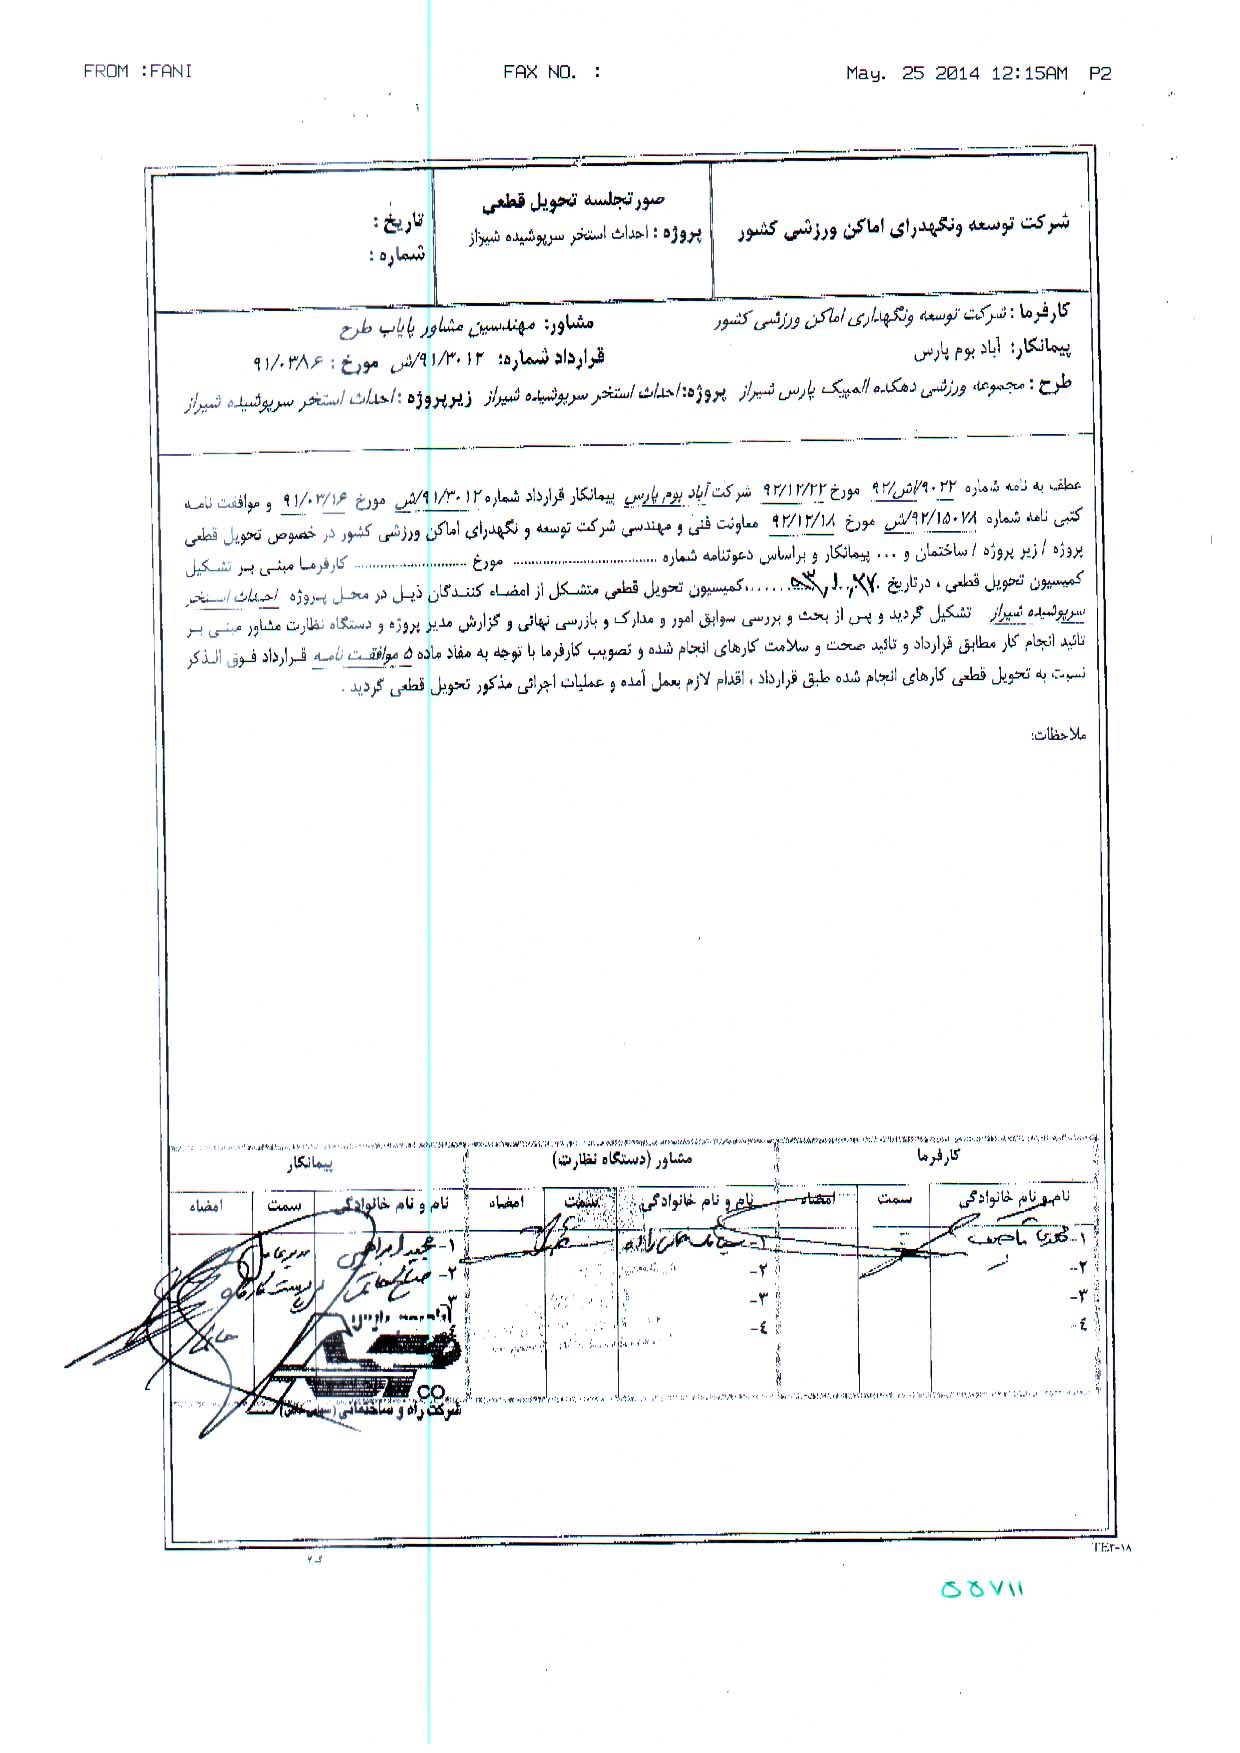 FROM :FANI FAX NO. : May. 25 2014 12:15AM P2
شرکت توسعه ونگهدرای اماکن ورزشی کشور
صورتجلسه تحویل قطعی
پروژه : احداث استخر سرپوشیده شیراز
تاریخ :
شماره :
کارفرما : شرکت توسعه ونگهداری اماکن ورزشی کشور مشاور: مهندسین مشاور پایاب طرح
پیمانکار: آباد بوم پارس قرارداد شماره: ۹۱/۳۰۱۲/ش مورخ : ۹۱/۰۳۸۶
طرح : مجموعه ورزشی دهکده المپیک پارس شیراز پروژه:احداث استخر سرپوشیده شیراز زیرپروژه :احداث استخر سرپوشیده شیراز
عطف به نامه شماره ۹۲/ش/۹۰۲۲ مورخ ۹۲/۱۲/۲۲ شرکت آباد بوم پارس پیمانکار قرارداد شماره ۹۱/۳۰۱۲/ش مورخ ۹۱/۰۳/۱۶ و موافقت نامه
کتبی نامه شماره ۹۲/۱۵۰۷۸/ش مورخ ۹۲/۱۲/۱۸ معاونت فنی و مهندسی شرکت توسعه و نگهدرای اماکن ورزشی کشور در خصوص تحویل قطعی
پروژه / زیر پروژه / ساختمان و ... پیمانکار و براساس دعوتنامه شماره .................... مورخ .................... کارفرما مبنی بر تشکیل
کمیسیون تحویل قطعی ، درتاریخ ........،کمیسیون تحویل قطعی متشکل از امضاء کنندگان ذیل در محل پروژه احداث استخر
سرپوشیده شیراز تشکیل گردید و پس از بحث و بررسی سوابق امور و مدارک و بازرسی نهائی و گزارش مدیر پروژه و دستگاه نظارت مشاور مبنی بر
تائید انجام کار مطابق قرارداد و تائید صحت و سلامت کارهای انجام شده و تصویب کارفرما با توجه به مفاد ماده ۵ موافقت نامه قرارداد فوق الذکر
نسبت به تحویل قطعی کارهای انجام شده طبق قرارداد ، اقدام لازم بعمل آمده و عملیات اجرائی مذکور تحویل قطعی گردید .
ملاحظات:
کارفرما مشاور (دستگاه نظارت) پیمانکار
نام و نام خانوادگی سمت امضاء نام و نام خانوادگی سمت امضاء نام و نام خانوادگی سمت امضاء
۱- ۱- ۱- مجید ابراهیمی مدیرعامل
۲- ۲- ۲- سرپرست کارگاه
۳- ۳- ۳
٤- ٤- ٤
CO.
شرکت راه و ساختمانی (سهامی خاص)
TE۲-۱۸
۵۵۷۱۱